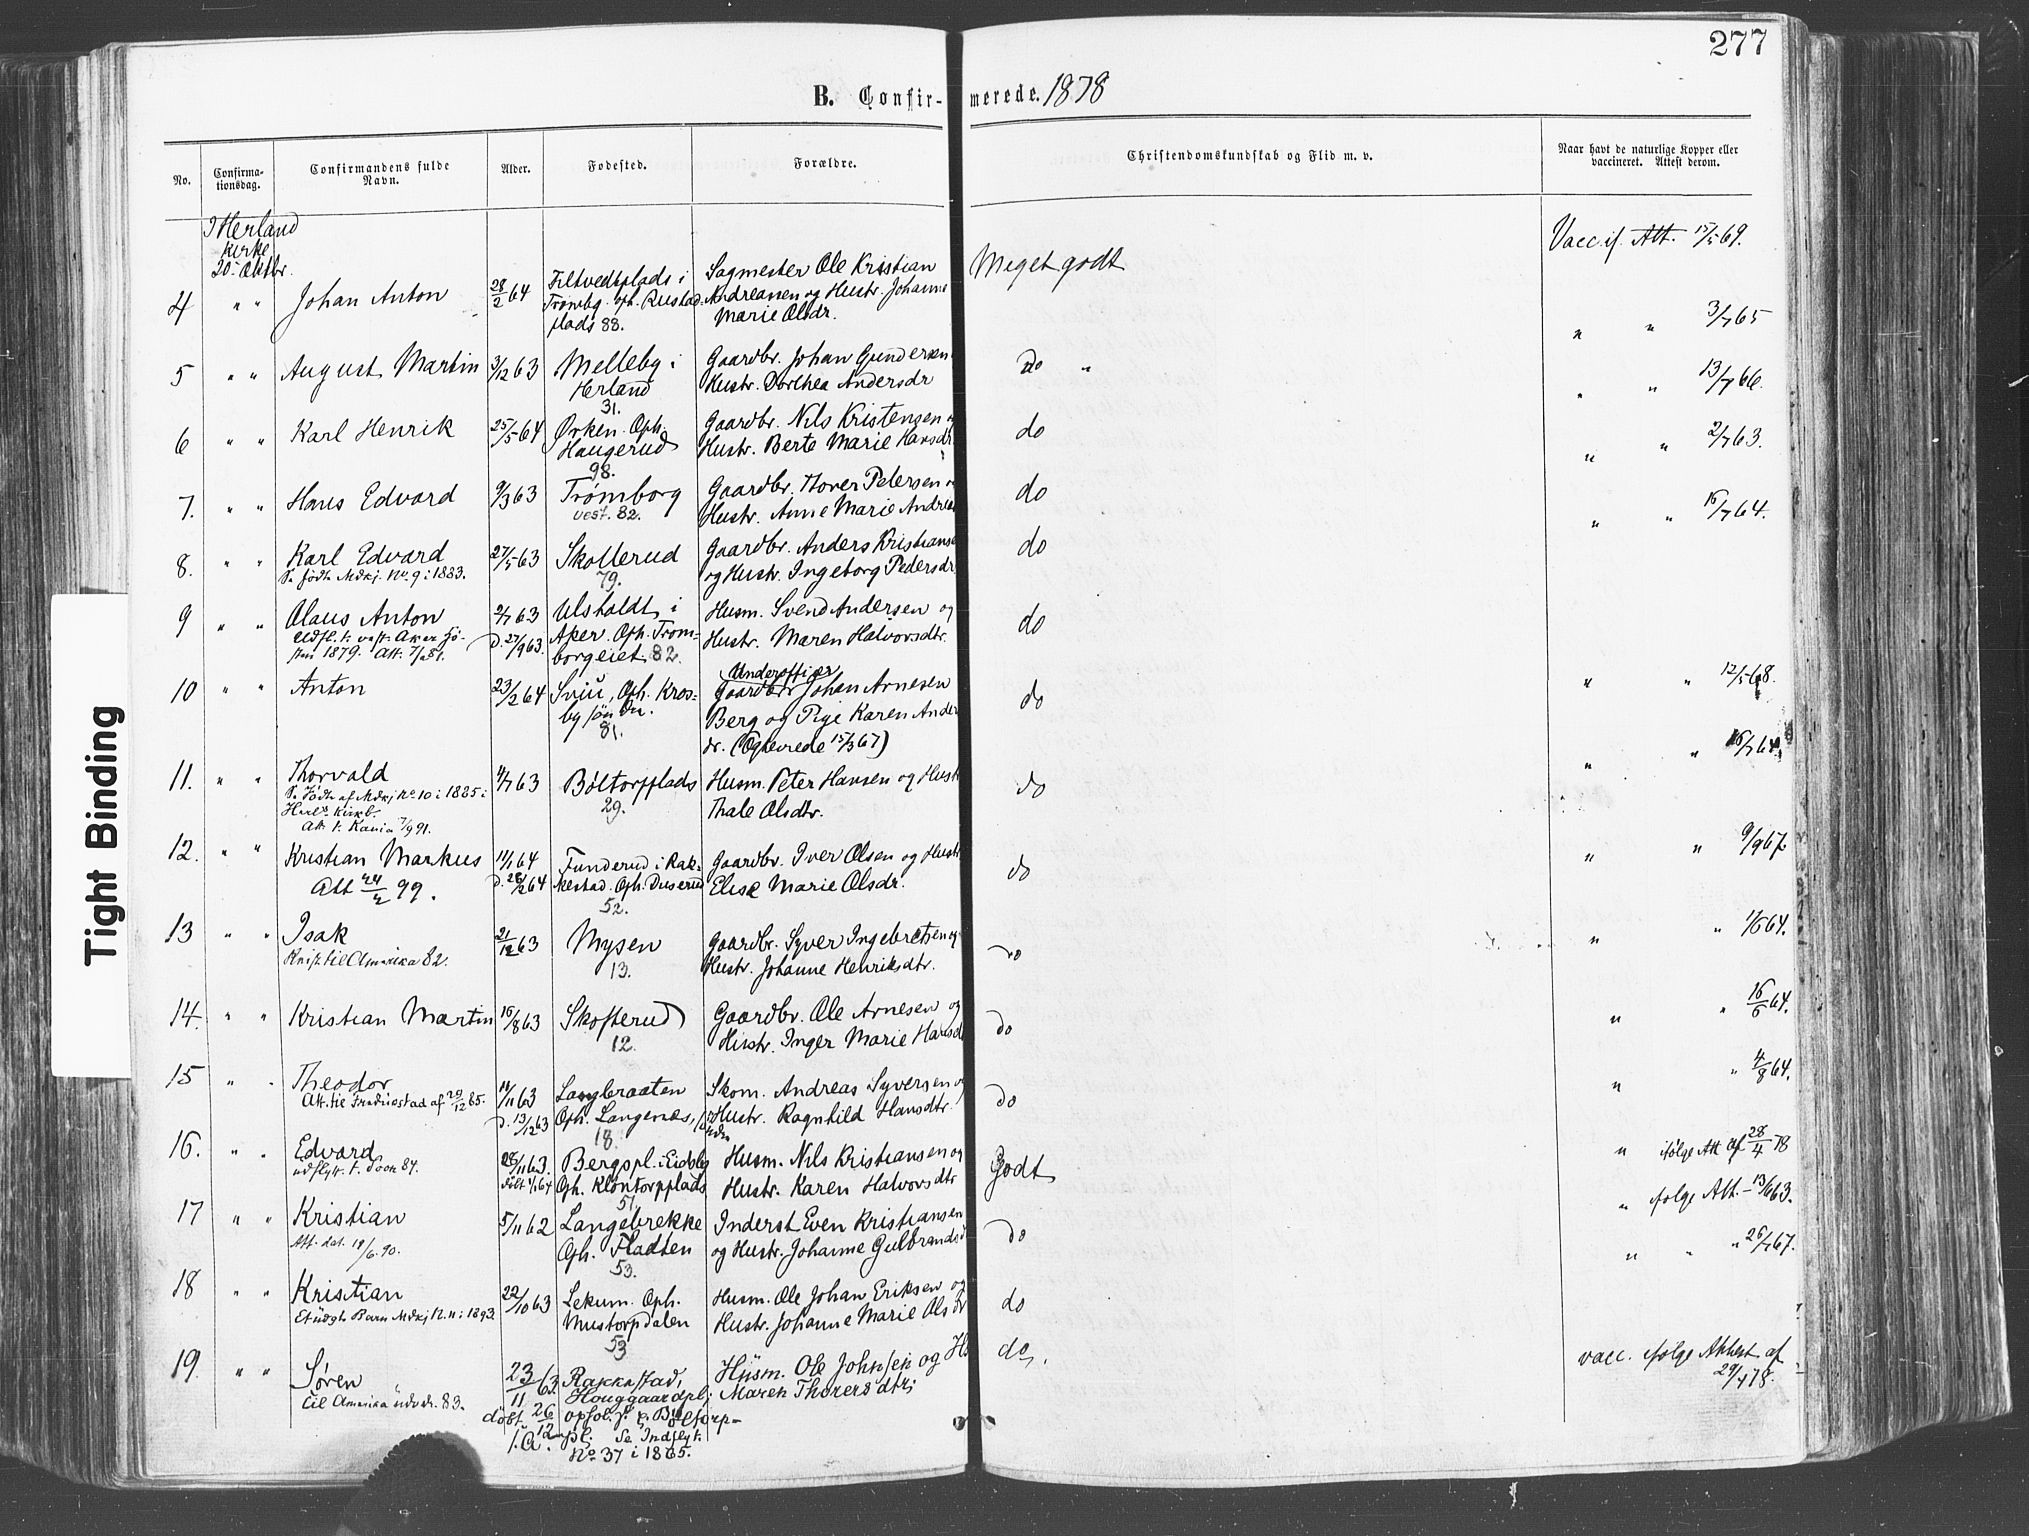 277
B. Confir-merede. 1878
No.
Confirma-
tionsdag.
Confirmandens fulde
Navn.
Alder.
Fødested.
Forældre.
Christendomskundskab og Flid m. v.
Naar havt de naturlige Kopper eller
vaccineret. Attest derom.
I Herland
Kirke
20. Oktbr.
4 " " Johan Anton 28/2 64
Filtvedtplads i
Trømbg. Oph. Rustad-
plads 88.
Sagmester Ole Kristian
Andreasen og Hustr. Johanne
Marie Olsdr.
Meget godt
Vacc. if. Att. 15/5 69.
5 " " August Martin 3/12 63
Melleby i
Herland
31.
Gaardbr. Johan Gundersen
Hustr. Dorthea Andersdr
do "
" " 3/7 65
6 " " Karl Henrik 25/5 64
Ørken. Oph.
Haugerud
98.
Gaardbr. Nils Kristensen o
Hustr. Berte Marie Hansdr.
do
" " 13/7 66.
7. " " Hans Edvard 9/3 63
Trømborg
vest. 82.
Gaardbr. Thover Petersen o
Hustr. Anne Marie Andrea
do
" " 2/7 63.
8. " " Karl Edvard 27/5 63
Se fødte Mdkj. No. 9 i 1883.
Skollerud
79.
Gaardbr. Anders Kristianse
og Hustr. Ingeborg Pedersdr.
do
" " 16/7 64.
9 " " Olaus Anton 2/7 63
Udfl. t. vest. Aker Hø-
sten 1879. Att. 81.
D. 27/9 63.
Ulsholdt i
Aker. Oph. Trøm-
borgeiet 82.
Husm. Svend Andersen og
Hustr. Maren Halvorsdtr.
do
10 " " Anton 23/2 64
Sviu, Oph. Kros-
by søn
81.
Underofficer
Gaardbr Johan Arnesen
Berg og Pige Karen Ander
dr. (Ægteviede 15/3 67)
do
" " 12/5 68.
11. " " Thorvald 4/7 63
Se Fødte af Mdkj No. 10 i 1885 i
Herl. Kirkb.
Att. t. 7/9 91.
Bøltorpplads
29.
Husm. Peter Hansen og Hustr
Thale Olsdtr.
do
" " 16/7 64.
12. " " Kristian Markus 11/1 64
Att 99.
D. 28/2 64
Funderud i Rak-
kestad. Oph. Duserud
52.
Gaardbr. Iver Olsen og Hustr
Elise Marie Olsdr.
do
" " 9/9 67
13 " " Isak 21/12 63
til Amerika 82.
Mysen
13.
Gaardbr. Syver Ingebretsen og
Hustr. Johanne Henriksdtr.
do
" " 64.
14. " " Kristian Martin 16/8 63
Skofterud
12.
Gaardbr. Ole Arnesen og
Hustr. Inger Marie Hansd
do
" " 16/6 64.
15 " " Theodor 14/11 63
Att. til Fredriksstad af 29/12 85.
D. 13/12 63
Langbraaten
Oph. Langenæs,
18.
Skom. Andreas Syversen o
Hustr. Ragnhild Hansdtr.
do
" " 4/8 64.
16. " " Edvard 28/11 63.
udflytt. t. 84.
døbt 1/1 64
Bergspl. i Eidsbg
Oph. Klontorpplads
51.
Husm. Nils Kristiansen og
Hustr. Karen Halvorsdtr
Godt
" ifølge Att af 28/4 78
17 " " Kristian 5/11 62
Att. dat. 19/6. 90.
Langebrekke
Oph. Fladsen
53.
Inderst Even Kristiansen
og Hustr. Johanne Gulbrandsd
do
" ifølge Att. – 13/6 63.
18 " " Kristian 22/10 63
Et uægte Barn Mdkj N. 11 i 1893.
Lekum. Oph.
Mustorpdalen
53
Husm. Ole Johan Eriksen og
Hustr. Johanne Marie Olsdr
do
" " " 26/7 67.
19. " " Søren 23/11 63.
til Amerika udvdr. 83.
døbt 26/12 s. A.
Rakkestad,
Houggaardpl;
opfol. p. Bøltorp-
pl. Se Indflyt.
No 37 i 1865.
Husm. Ole Johnsen og H
Maren Thorersdtr;
do.
vacc. ifølge Attest af
29/4 78.
Tight Binding